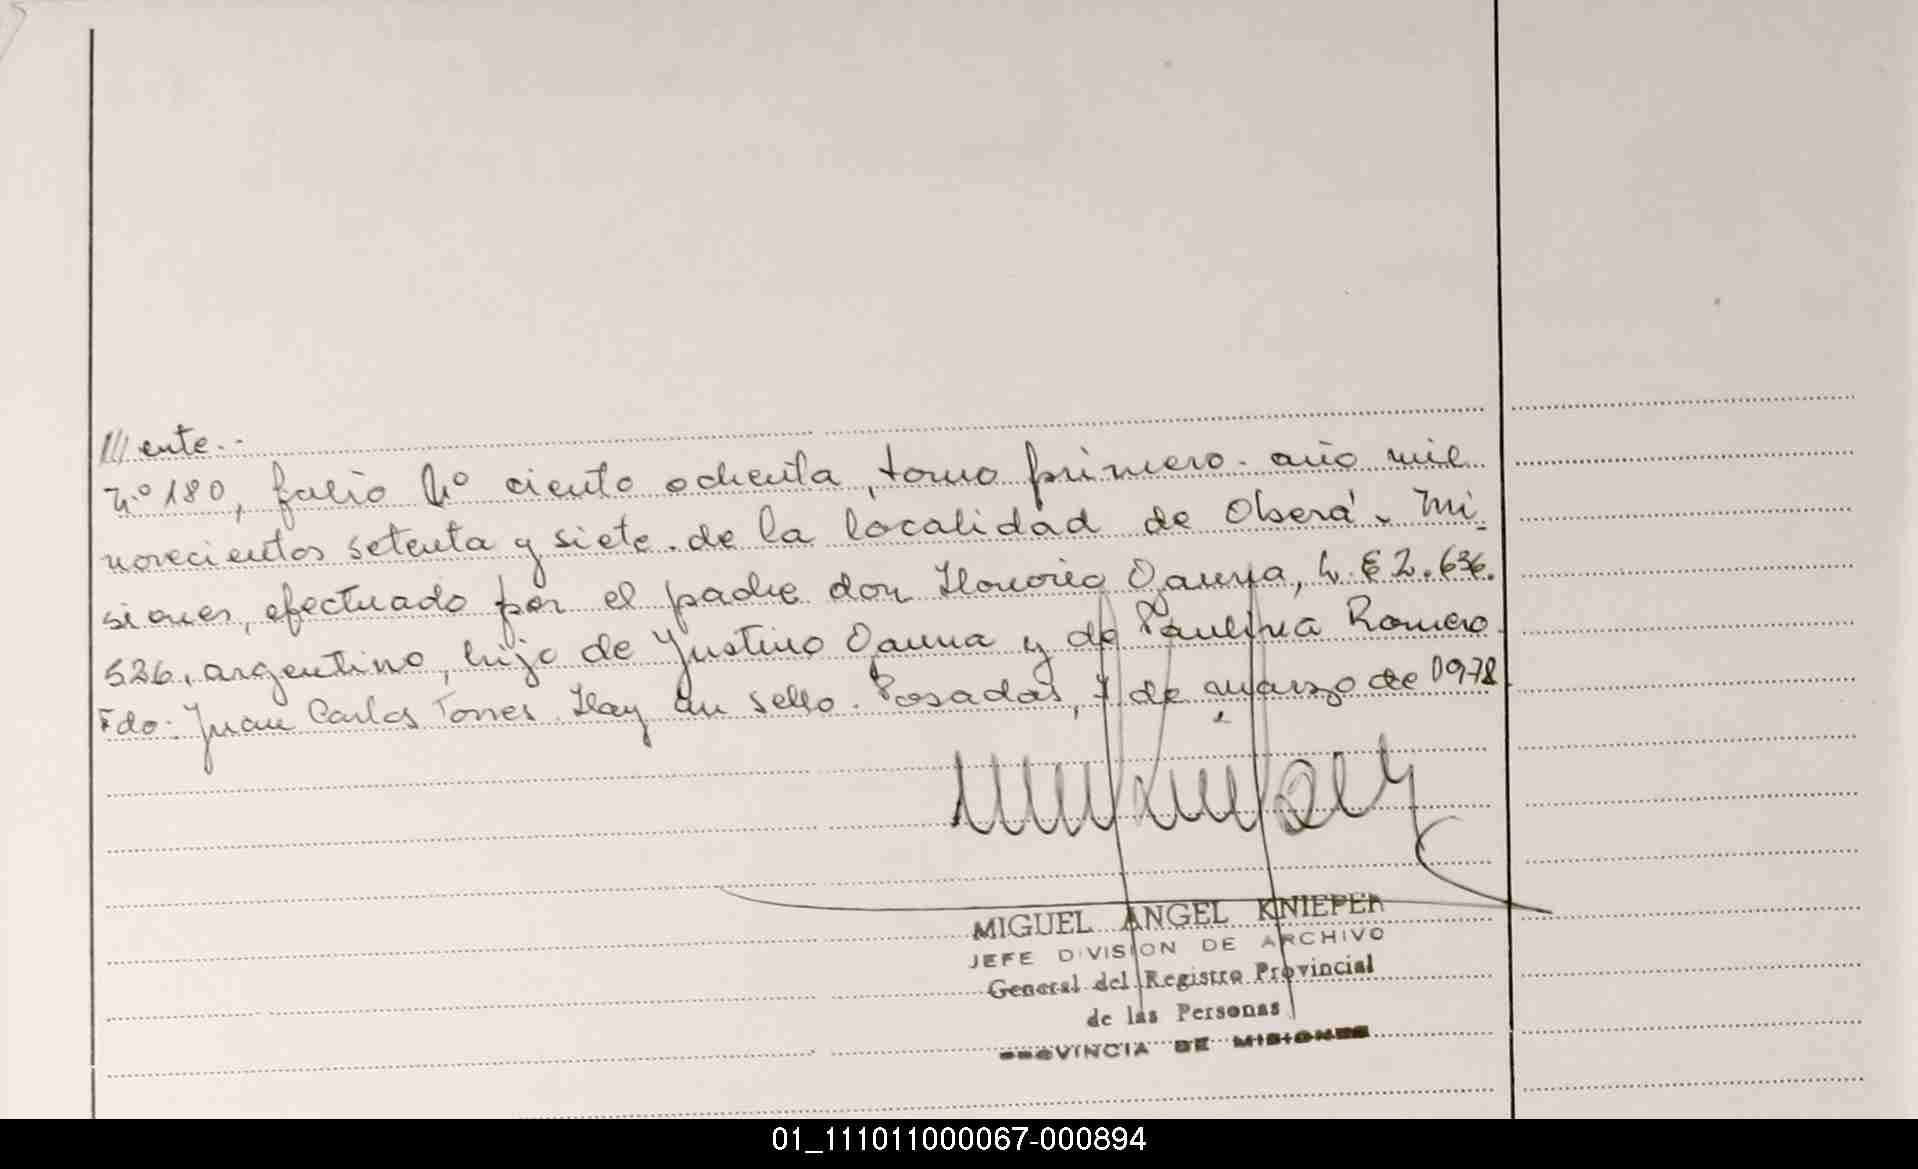 ///ente.-
Nº 180, folio Nº ciento ochenta, tomo primero. año mil
novecientos setenta y siete. de la localidad de Oberá. Mi_
siones, efectuado por el padre don Honorio Dauna, L. E 2.636.
526, argentino, hijo de Justino Dauna y de Paulina Romero.
Fdo: Juan Carlos Torres. Hay un sello. Posadas, 7 de marzo de 1978
MIGUEL ANGEL KNIEPER
JEFE DIVISION DE ARCHIVO
General del Registro Provincial
de las Personas
PROVINCIA DE MISIONES
01_111011000067-000894